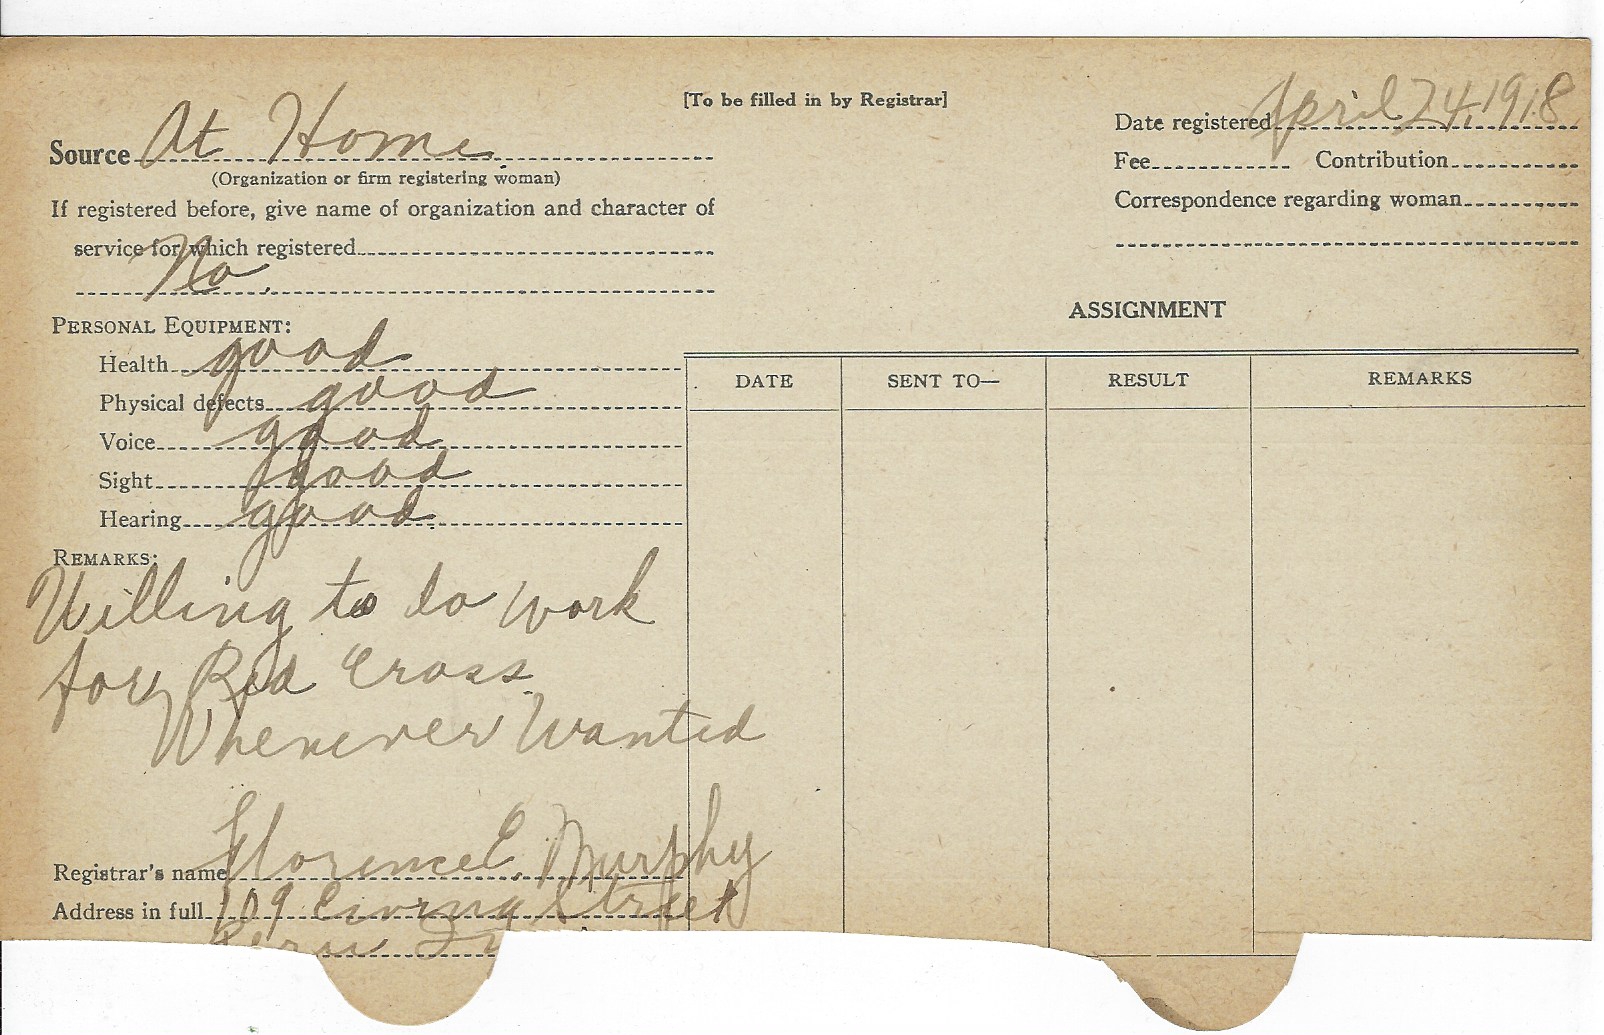 [To be filled in by Registrar]
Date registered April 24, 1918
Source At Home.
(Organization or firm registering woman)
Fee Contribution
If registered before, give name of organization and character of
service for which registered
No.
Correspondence regarding woman
ASSIGNMENT
PERSONAL EQUIPMENT:
Health good
Physical defects good
Voice good
Sight good
Hearing good
DATE SENT TO— RESULT REMARKS
REMARKS:
Willing to do work
for Red Cross
Whenever Wanted
Registrar's name Florence E. Murphy
Address in full 109 Street
Peru